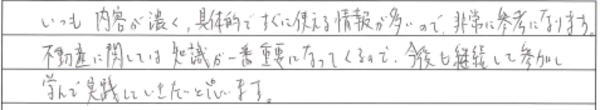 いつも内容が濃く、具体的ですぐに使える情報が多いので、非常に参考になります。
不動産に関しては知識が一番重要になってくるので、今後も継続して参加し
学んで実践していきたいと思います。